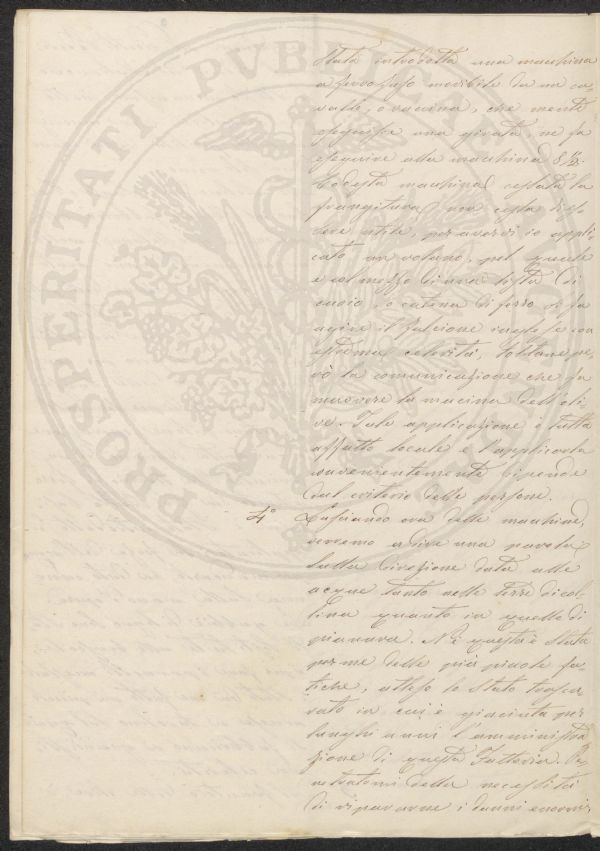 PROSPERITATI PVBLICAE
stata introdotta una macchina
movibile da un ca-
vallo, o vaccina, che mentre
eseguisce una girata, ne fa
eseguire alla macchina 8 1/2.
Codesta macchina cessata la
frangitura non cessa d'esse
utile, per avervi io appli-
cato un volano, pel quale
e col mezzo di una
cuoio o catena di ferro si fa
agire il falcione con
estrema celerità, toltane pe-
rò la comunicazione che fa
muovere la macina dell'oli-
ve. Tale applicazione è tutta
affatto locale e l'applicarla
convenientemente dipende
dal criterio delle persone.
4° Lasciando ora delle macchine,
verremo a dire una parola
sulla direzione data alle
acque tanto nelle terre di col-
lina quanto in quelle di
pianura. Nè questa è stata
per me delle più piccole fa-
tiche, atteso lo stato trascu-
rato in cui è giaciuta per
lunghi anni l'amministra-
zione di questa Fattoria. Pe-
netratomi della necessità
di ripararne i danni enormi